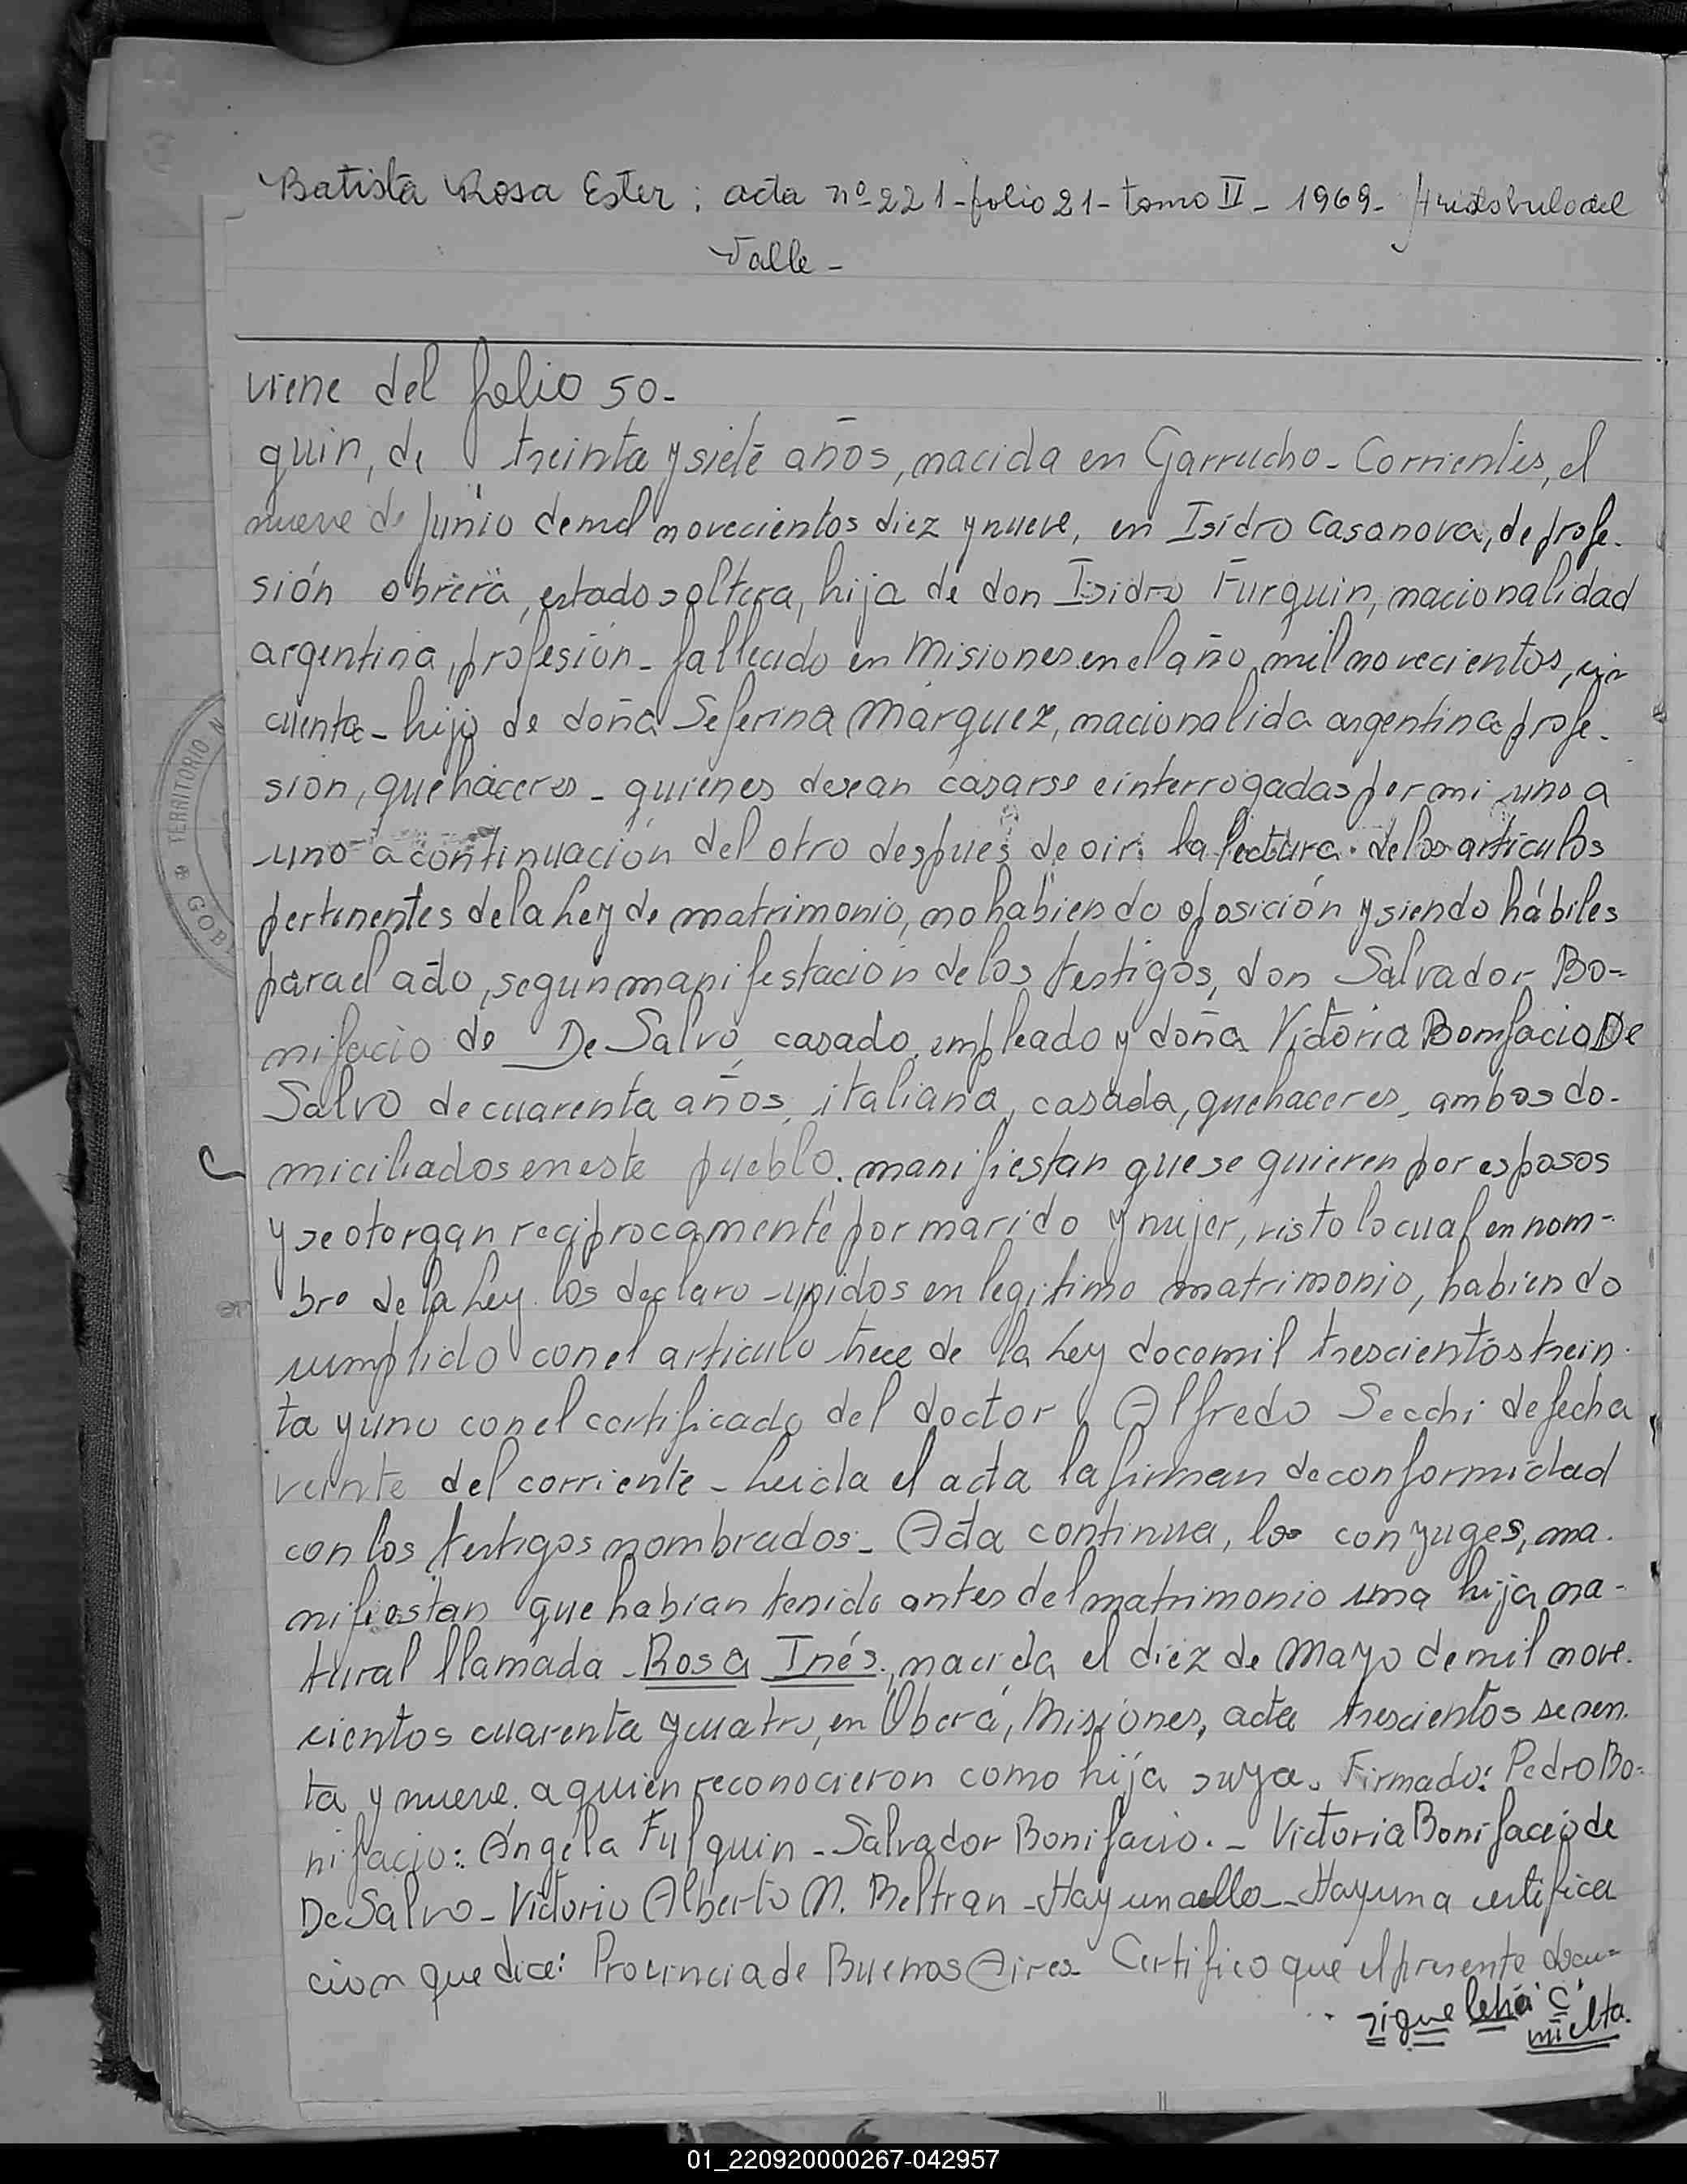 Batista Rosa Ester: acta nº 221-folio 21-tomo II - 1969- Aristobulo del
Valle-
viene del folio 50-
quin, de treinta y siete años, nacida en Garrucho-Corrientes, el
nueve de Junio de mil novecientos diez y nueve, en Isidro Casanova, de profe-
sión obrera, estado soltera, hija de don Isidro Furquin, nacionalidad
argentina, profesión- fallecido en Misiones en el año mil novecientos, cin
cuenta- hijo de doña Seferina Marquez, nacionalida argentina profe-
sion, quehaceres- quienes desean casarse e interrogadas por mi uno a
uno a continuación del otro despues de oir la lectura de los artículos
pertinentes de la Ley de matrimonio, no habiendo oposición y siendo hábiles
para el acto, segun manifestación de los testigos, don Salvador Bo-
nifacio de De Salvo, casado, empleado y doña Victoria Bonifacio De
Salvo de cuarenta años, italiana, casada, quehaceres, ambos do-
miciliados en este pueblo. manifiestan que se quieren por esposos
y se otorgan reciprocamente por marido y nujer, visto lo cual en nom-
bre de la Ley los declaro unidos en legitimo matrimonio, habiendo
cumplido con el articulo trece de la Ley doce mil trescientos trein-
ta y uno con el certificado del doctor Alfredo Secchi de fecha
veinte del corriente- Leida el acta la firman de conformidad
con los testigos nombrados- Acta continua, los conyuges, ma-
nifiestan que habian tenido antes del matrimonio una hija na-
tural llamada Rosa Inés, nacida el diez de Mayo de mil nove-
cientos cuarenta y cuatro, en Oberá, Misiones, acta trescientos sesen-
ta y nueve. a quien reconocieron como hija suya. Firmado: Pedro Bo-
nifacio: Angela Fulquin- Salvador Bonifacio.- Victoria Bonifacio de
De Salvo- Victorio Alberto M. Beltran- Hay un sello- Hay una certifica
cion que dice: Provincia de Buenos Aires- Certifico que el presente docu-
sigue letra "C"
vuelta.
TERRITORIO N
GOB
01_220920000267-042957